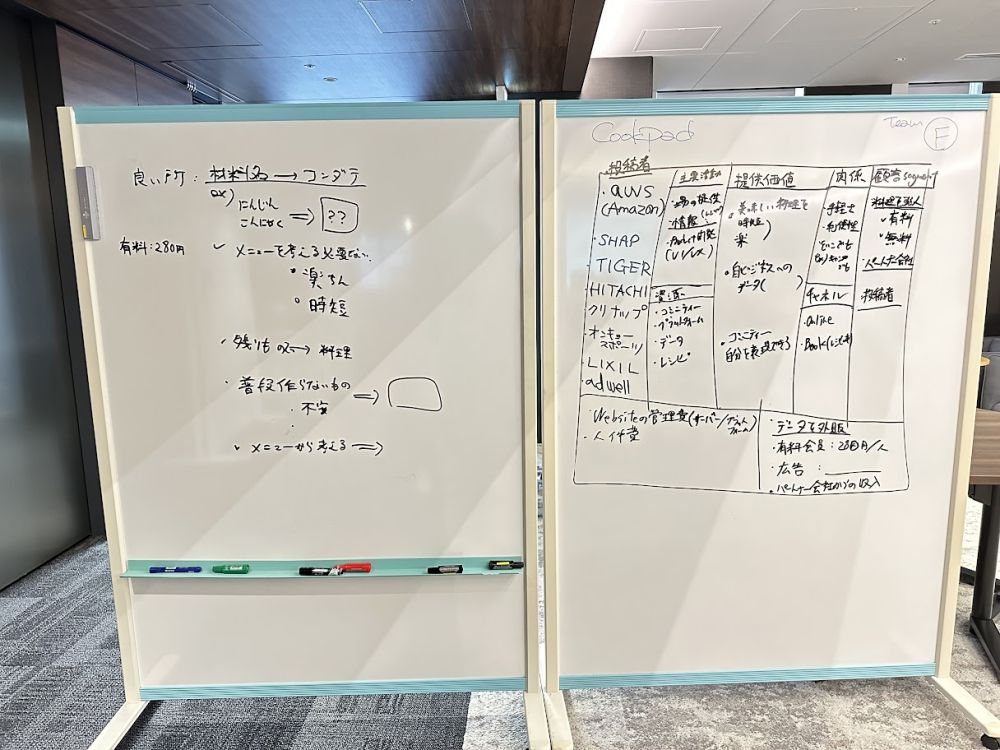 良い所：材料名→コンダテ
ex)
にんじん
こんにゃく
⇒ ??
有料：280円
✓ メニューを考える必要ない
・楽ちん
・時短
✓ 残りもの → 料理
・普段作らないもの ⇒
・不安
・メニューから考える ⇒
Cookpad
Team F
投稿者
・aws
(Amazon)
・SHAP
・TIGER
・HITACHI
・クリナップ
・オンキョー
スポーツ
・LIXIL
ad well
主要活動
の提供
・Product開発
(UI/UX)
資源
・コミニティー
・プラットフォーム
・データ
・レシピ
提供価値
・美味しい料理を
時短
楽
・自ビジネスへの
データ( )
・コミニティー
自分を表現できる
関係
・利便性
チャネル
・Online
・Book(レシピ本)
顧客segment
料理を
・有料
・無料
・パートナー会社
投稿者
・Websiteの管理費(サーバー/プラットフォーム)
・人件費
・データを外販
・有料会員：280円/人
・広告：
・パートナー会社からの収入